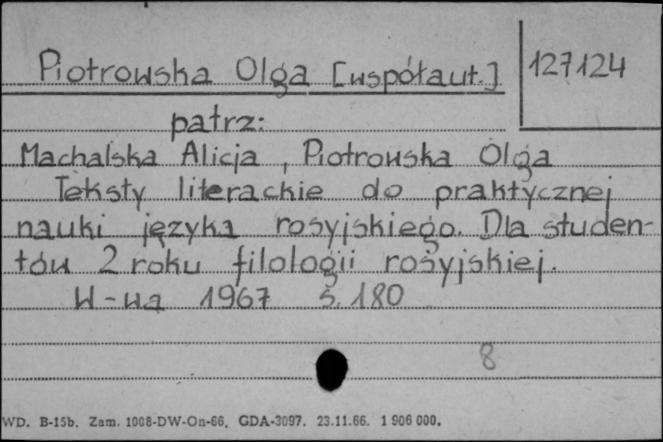 Piotrowska Olga [współaut.]
127124
patrz:
Machalska Alicja, Piotrowska Olga
Teksty literackie do praktycznej
nauki języka rosyjskiego. Dla studen-
tów 2 roku filologii rosyjskiej.
W-wa 1967 s. 180
8
WD. B-15b. Zam. 1008-DW-On-66. GDA-3097. 23.11.66. 1 906 000.